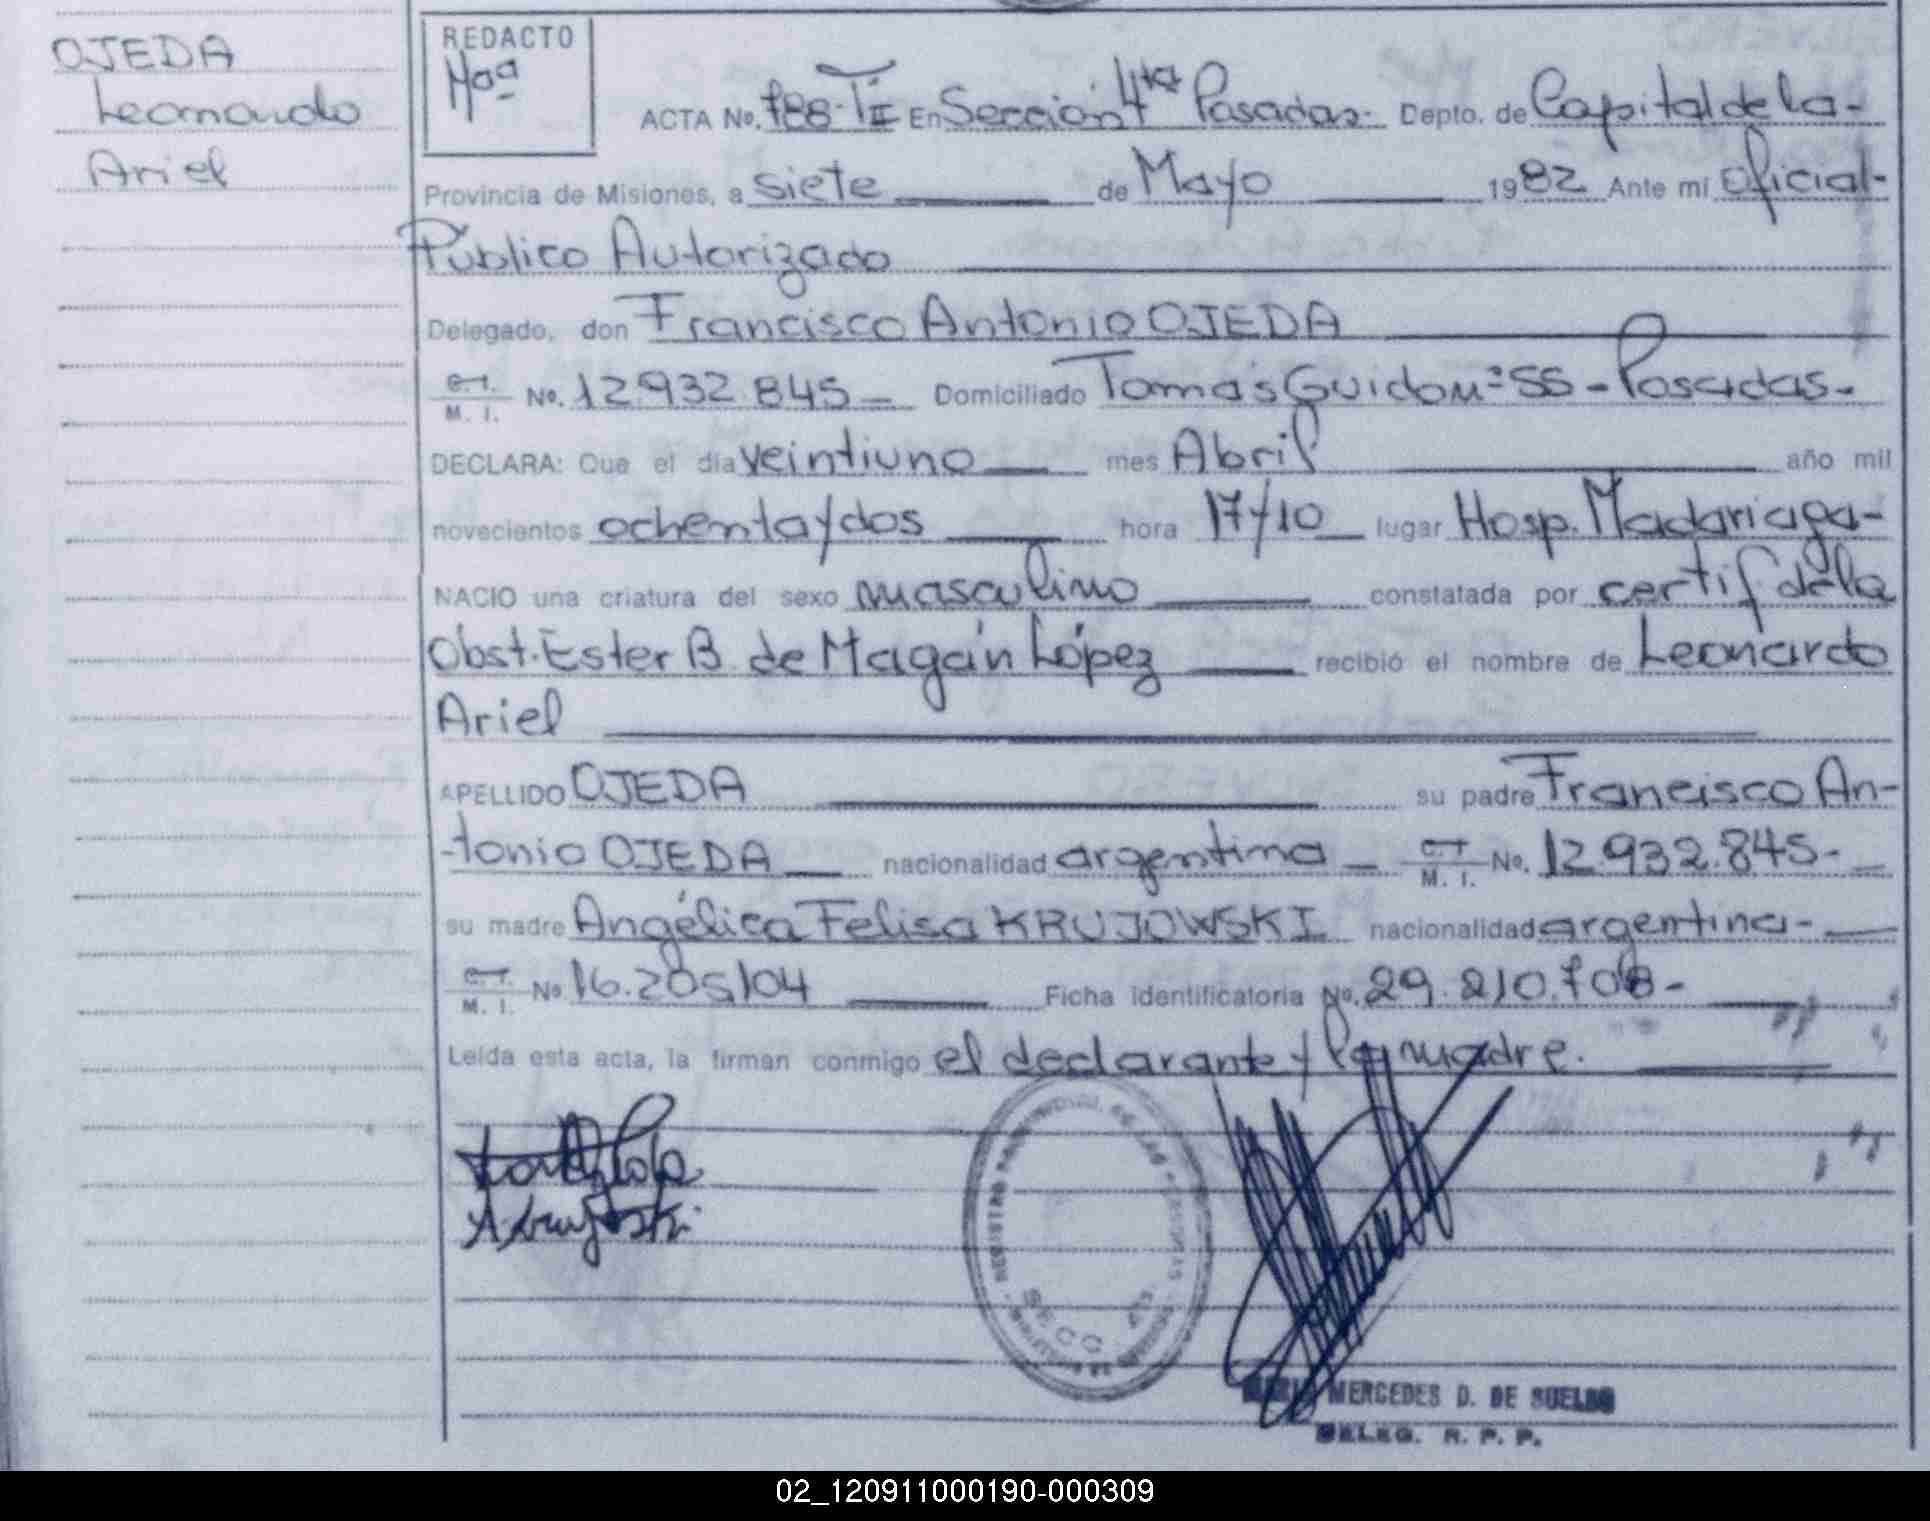 OJEDA
Leonardo
Ariel
REDACTO
Mªª
ACTA No. 788-T II En Sección 4ta Posadas- Depto. de Capital de la-
Provincia de Misiones, a siete de Mayo 1982 Ante mí Oficial-
Público Autorizado
Delegado, don Francisco Antonio OJEDA
C.I. M. I. No. 12.932.845- Domiciliado Tomás Guido Nº 55- Posadas-
DECLARA: Que el día veintiuno mes Abril año mil
novecientos ochenta y dos hora 17y10 lugar Hosp. Madariaga-
NACIO una criatura del sexo masculino constatada por certif de la
Obst. Ester B. de Magán López recibió el nombre de Leonardo
Ariel
APELLIDO OJEDA su padre Francisco An-
-tonio OJEDA nacionalidad argentina C.I. M. I. No. 12.932.845-
su madre Angélica Felisa KRUJOWSKI nacionalidad argentina-
C.I. M. I. No. 16.205104 Ficha identificatoria No. 29.210.708-
Leída esta acta, la firman conmigo el declarante y la madre.
REGISTRO PROVINCIAL DE LAS PERSONAS
SECC. 4ta.
MERCEDES D. DE SUELDO
DELEG. R. P. P.
02_120911000190-000309